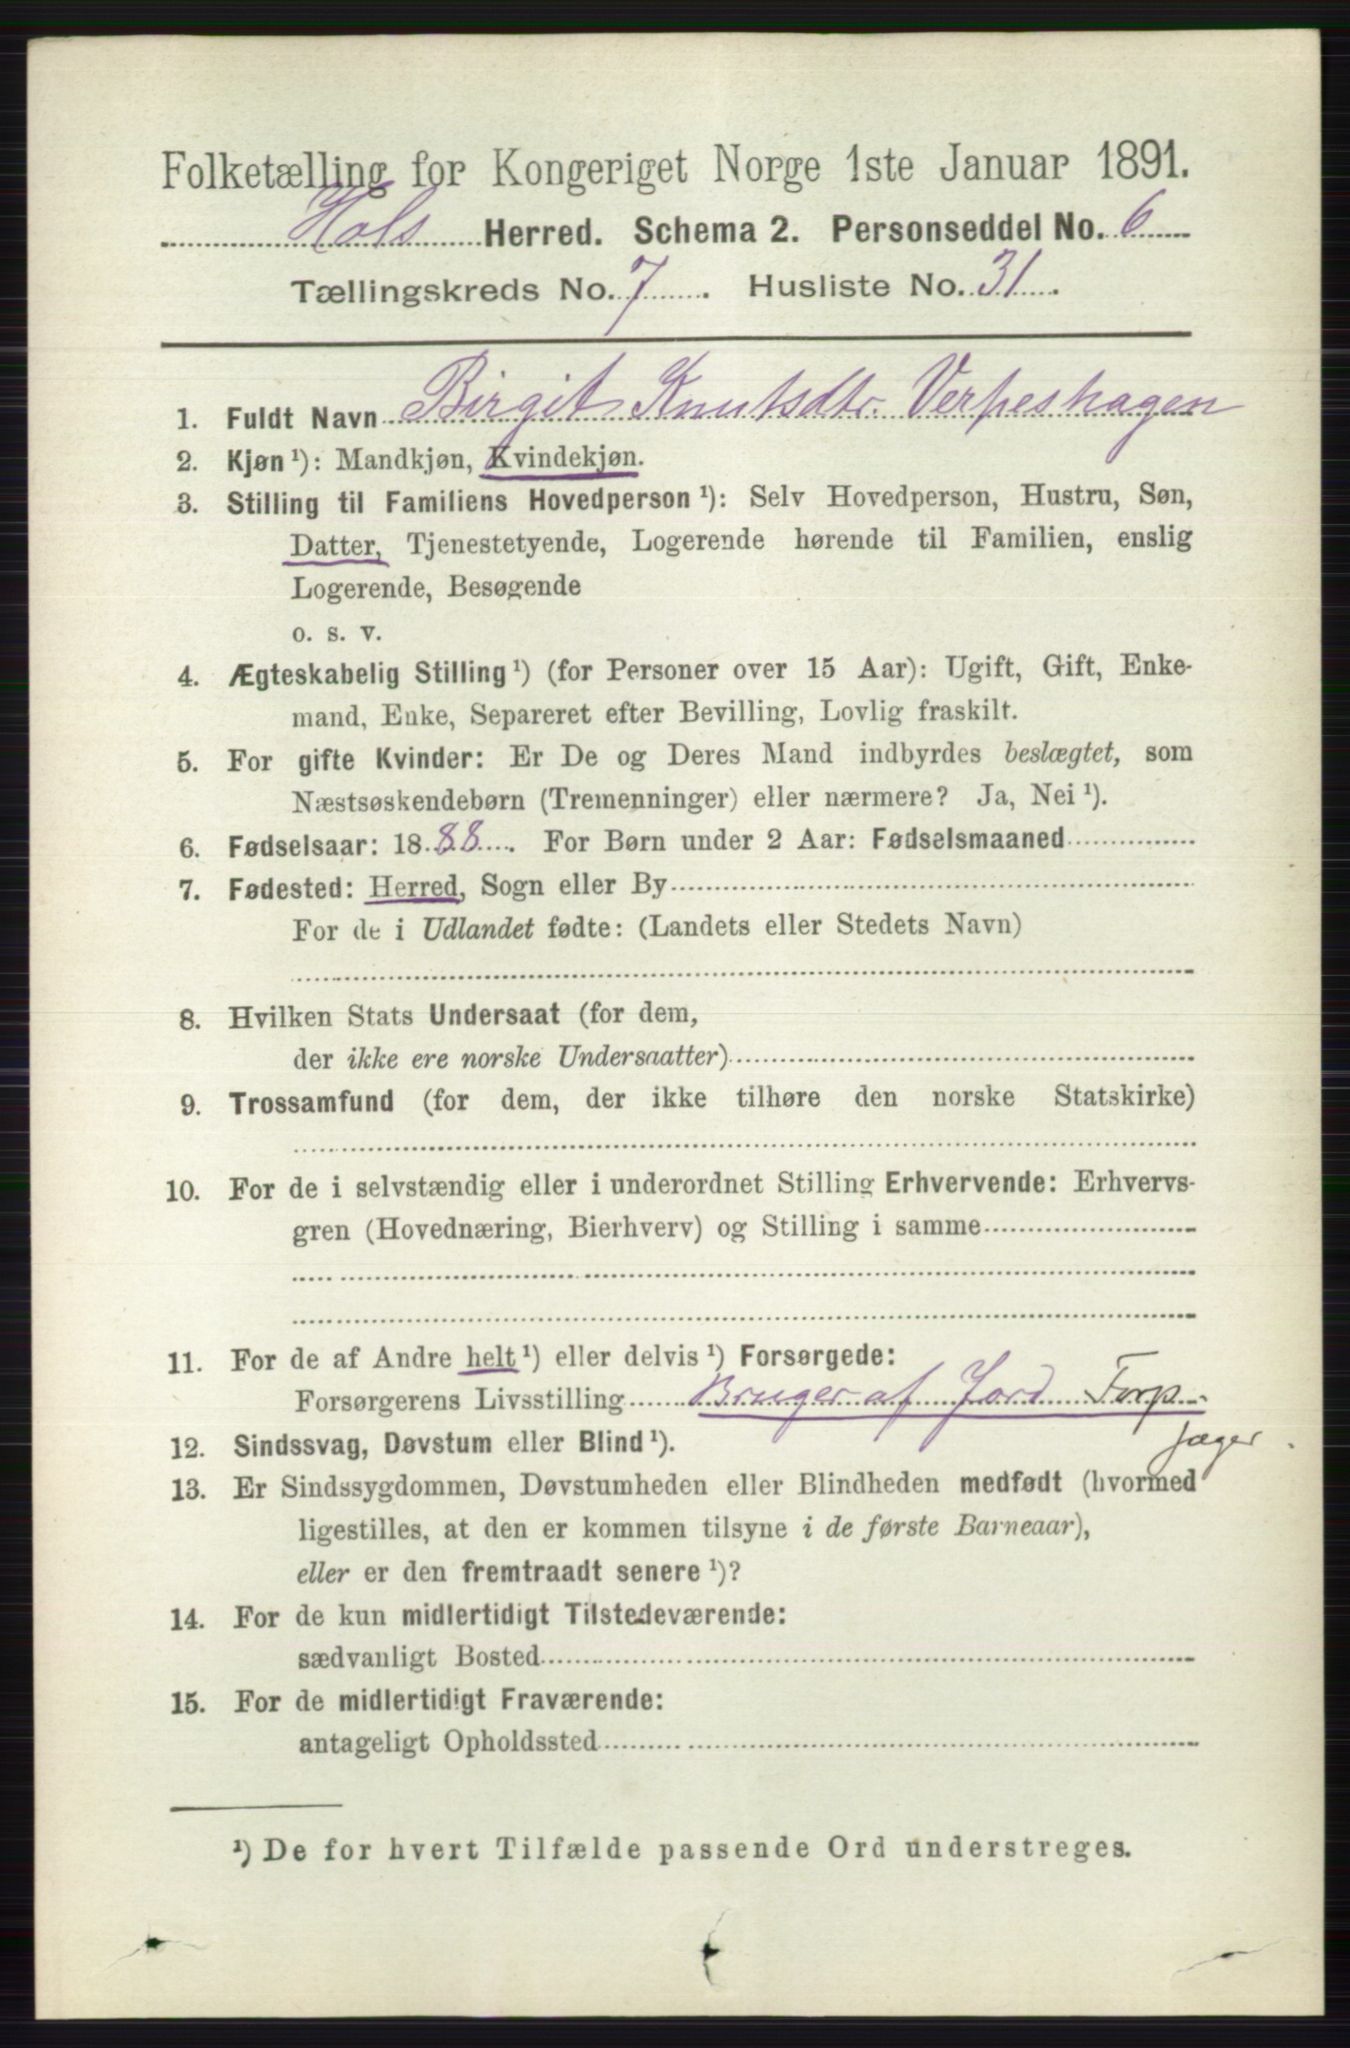 Folketælling for Kongeriget Norge 1ste Januar 1891.
Hols Herred. Schema 2. Personseddel No. 6
Tællingskreds No. 7. Husliste No. 31.
1. Fuldt Navn Birgit Knutsdtr. Verpeshagen
2. Kjøn ¹): Mandkjøn, Kvindekjøn.
3. Stilling til Familiens Hovedperson ¹): Selv Hovedperson, Hustru, Søn,
Datter, Tjenestetyende, Logerende hørende til Familien, enslig
Logerende, Besøgende
o. s. v.
4. Ægteskabelig Stilling ¹) (for Personer over 15 Aar): Ugift, Gift, Enke-
mand, Enke, Separeret efter Bevilling, Lovlig fraskilt.
5. For gifte Kvinder: Er De og Deres Mand indbyrdes beslægtet, som
Næstsøskendebørn (Tremenninger) eller nærmere? Ja, Nei ¹).
6. Fødselsaar: 1888. For Børn under 2 Aar: Fødselsmaaned
7. Fødested: Herred, Sogn eller By
For de i Udlandet fødte: (Landets eller Stedets Navn)
8. Hvilken Stats Undersaat (for dem,
der ikke ere norske Undersaatter)
9. Trossamfund (for dem, der ikke tilhøre den norske Statskirke)
10. For de i selvstændig eller i underordnet Stilling Erhvervende: Erhvervs-
gren (Hovednæring, Bierhverv) og Stilling i samme
11. For de af Andre helt ¹) eller delvis ¹) Forsørgede:
Forsørgerens Livsstilling Bruger af Jord
jæger.
12. Sindssvag, Døvstum eller Blind ¹).
13. Er Sindssygdommen, Døvstumheden eller Blindheden medfødt (hvormed
ligestilles, at den er kommen tilsyne i de første Barneaar),
eller er den fremtraadt senere ¹)?
14. For de kun midlertidigt Tilstedeværende:
sædvanligt Bosted
15. For de midlertidigt Fraværende:
antageligt Opholdssted
¹) De for hvert Tilfælde passende Ord understreges.